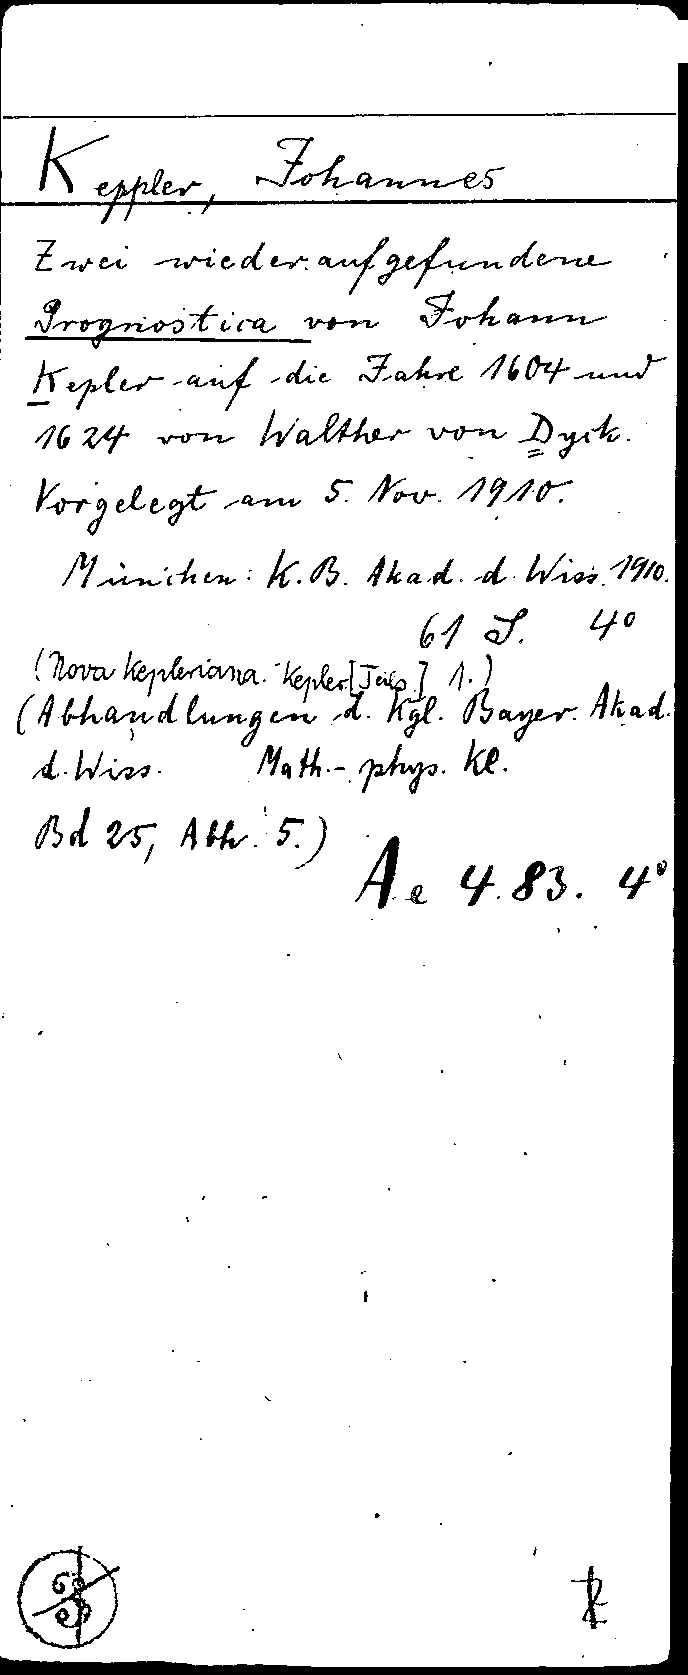 Keppler, Johannes
Zwei wiederaufgefundene
Prognostica von Johann
Kepler auf die Jahre 1604 und
1624 von Walther von Dyck.
Vorgelegt am 5. Nov. 1910.
München: K.B. Akad. d. Wiss. 1910.
61 S. 4°
(Nova Kepleriana. Kepler 1.)
(Abhandlungen d. Kgl. Bayer. Akad.
d. Wiss. Math.-phys. Kl.
Bd 25, Abh. 5.)
Ae 4.83. 4°